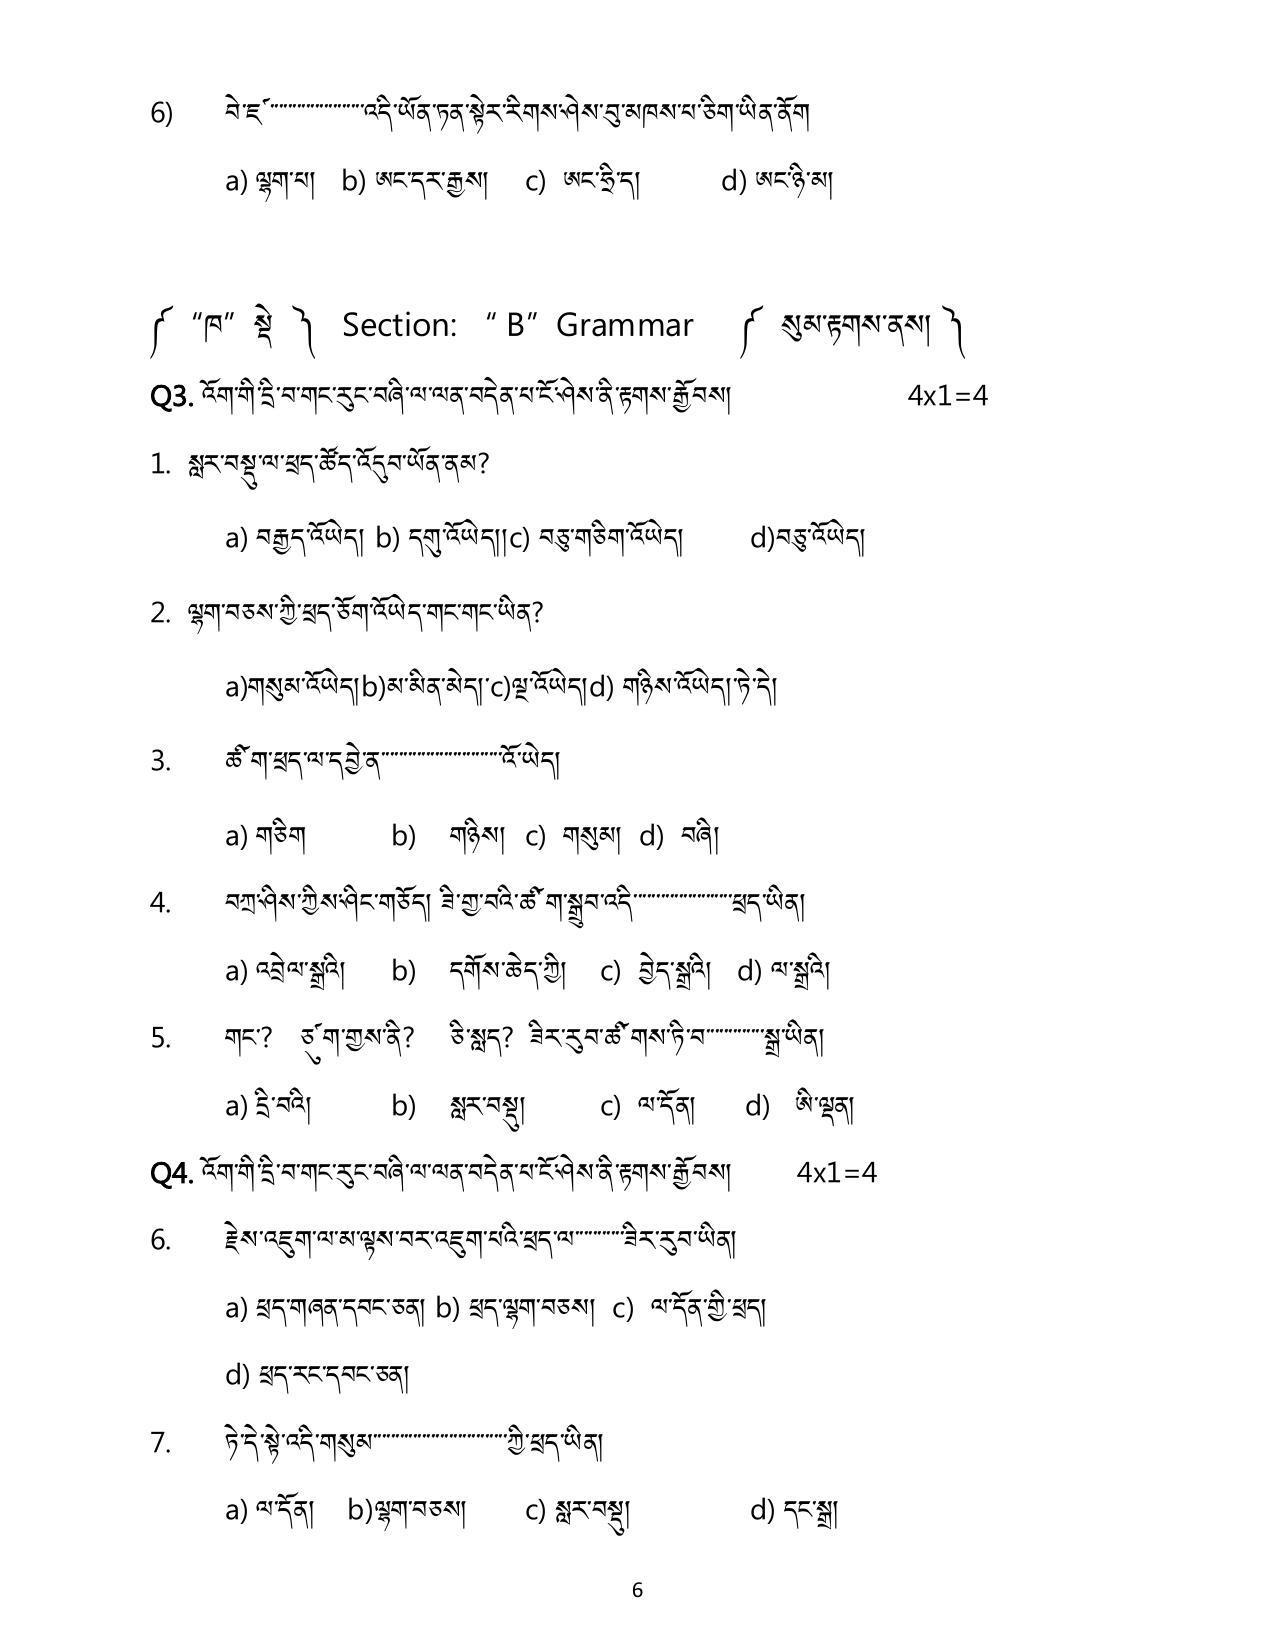 6) བེ་ཛ་་་་་་་་་་་་་་་་་་འདི་ཡོན་ཏན་སྟེར་རིགས་ཤེས་བུ་མཁས་པ་ཅིག་ཡིན་ནོག
a) ལྷག་པ། b) ཨང་དར་རྒྱས། c) ཨང་ཧྲི་ད། d) ཨང་ཉི་མ།
༼ “ཁ” སྡེ ༽ Section: “ B” Grammar ༼ སུམ་རྟགས་ནས། ༽
Q3. འོག་གི་དྲི་བ་གང་རུང་བཞི་ལ་ལན་བདེན་པ་ངོ་ཤེས་ནི་རྟགས་རྒྱོབས། 4x1=4
1. སླར་བསྡུ་ལ་ཕྲད་ཚོད་འོདུབ་ཡོན་ནམ?
a) བརྒྱད་འོཡེད། b) དགུ་འོཡེད།།c) བཅུ་གཅིག་འོཡེད། d)བཅུ་འོཡེད།
2. ལྷག་བཅས་ཀྱི་ཕྲད་ཅོག་འོཡེད་གང་གང་ཡིན?
a)གསུམ་འོཡེད།b)མ་མིན་མེད།་c)ལྔ་འོཡེད།d) གཉིས་འོཡེད།་ཏེ་དེ།
3. ཚིག་ཕྲད་ལ་དབྱེ་ན་་་་་་་་་་་་་་་་་་་་་་འོ་ཡེད།
a) གཅིག b) གཉིས། c) གསུམ། d) བཞི།
4. བཀྲ་ཤིས་ཀྱིས་ཤིང་གཅོད། ཟི་གྱ་བའི་ཚིག་སྒྲུབ་འདི་་་་་་་་་་་་་་་་་་ཕྲད་ཡིན།
a) འབྲེལ་སྒྲའི། b) དགོས་ཆེད་ཀྱི། c) བྱེད་སྒྲའི། d) ལ་སྒྲའི།
5. གང་? ཙུག་གྱས་ནི? ཅི་སླད? ཟེར་རུབ་ཚིགས་ཏི་བ་་་་་་་་་་་སྒྲ་ཡིན།
a) དྲི་བའི། b) སླར་བསྡུ། c) ལ་དོན། d) ཨི་ལྡན།
Q4. འོག་གི་དྲི་བ་གང་རུང་བཞི་ལ་ལན་བདེན་པ་ངོ་ཤེས་ནི་རྟགས་རྒྱོབས། 4x1=4
6. རྗེས་འཇུག་ལ་མ་ལྟས་བར་འཇུག་པའི་ཕྲད་ལ་་་་་་་་་ཟེར་རུབ་ཡིན།
a) ཕྲད་གཞན་དབང་ཅན། b) ཕྲད་ལྷག་བཅས། c) ལ་དོན་གྱི་ཕྲད།
d) ཕྲད་རང་དབང་ཅན།
7. ཏེ་དེ་སྟེ་འདི་གསུམ་་་་་་་་་་་་་་་་་་་་་་་་་ཀྱི་ཕྲད་ཡིན།
a) ལ་དོན། b)ལྷག་བཅས། c) སླར་བསྡུ། d) དང་སྒྲ།
6